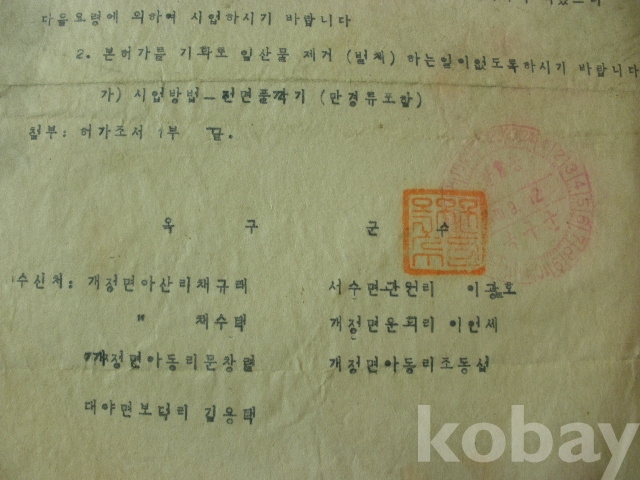 다음요령에 의하여 시업하시기 바랍니다
2. 본허가를 기화로 임산물 제거 (벌채) 하는일이없도록하시기 바랍니다
가) 시업방법-전면풀깎기 (만경류포함)
첨부: 허가조서 1부 끝.
옥 구 군 수
수신처: 개정면아산리채규태 서수면관원리 이광호
" 채수택 개정면운회리 이언세
개정면아동리문창렬 개정면아동리조동섭
대야면보덕리 김용택
kobay